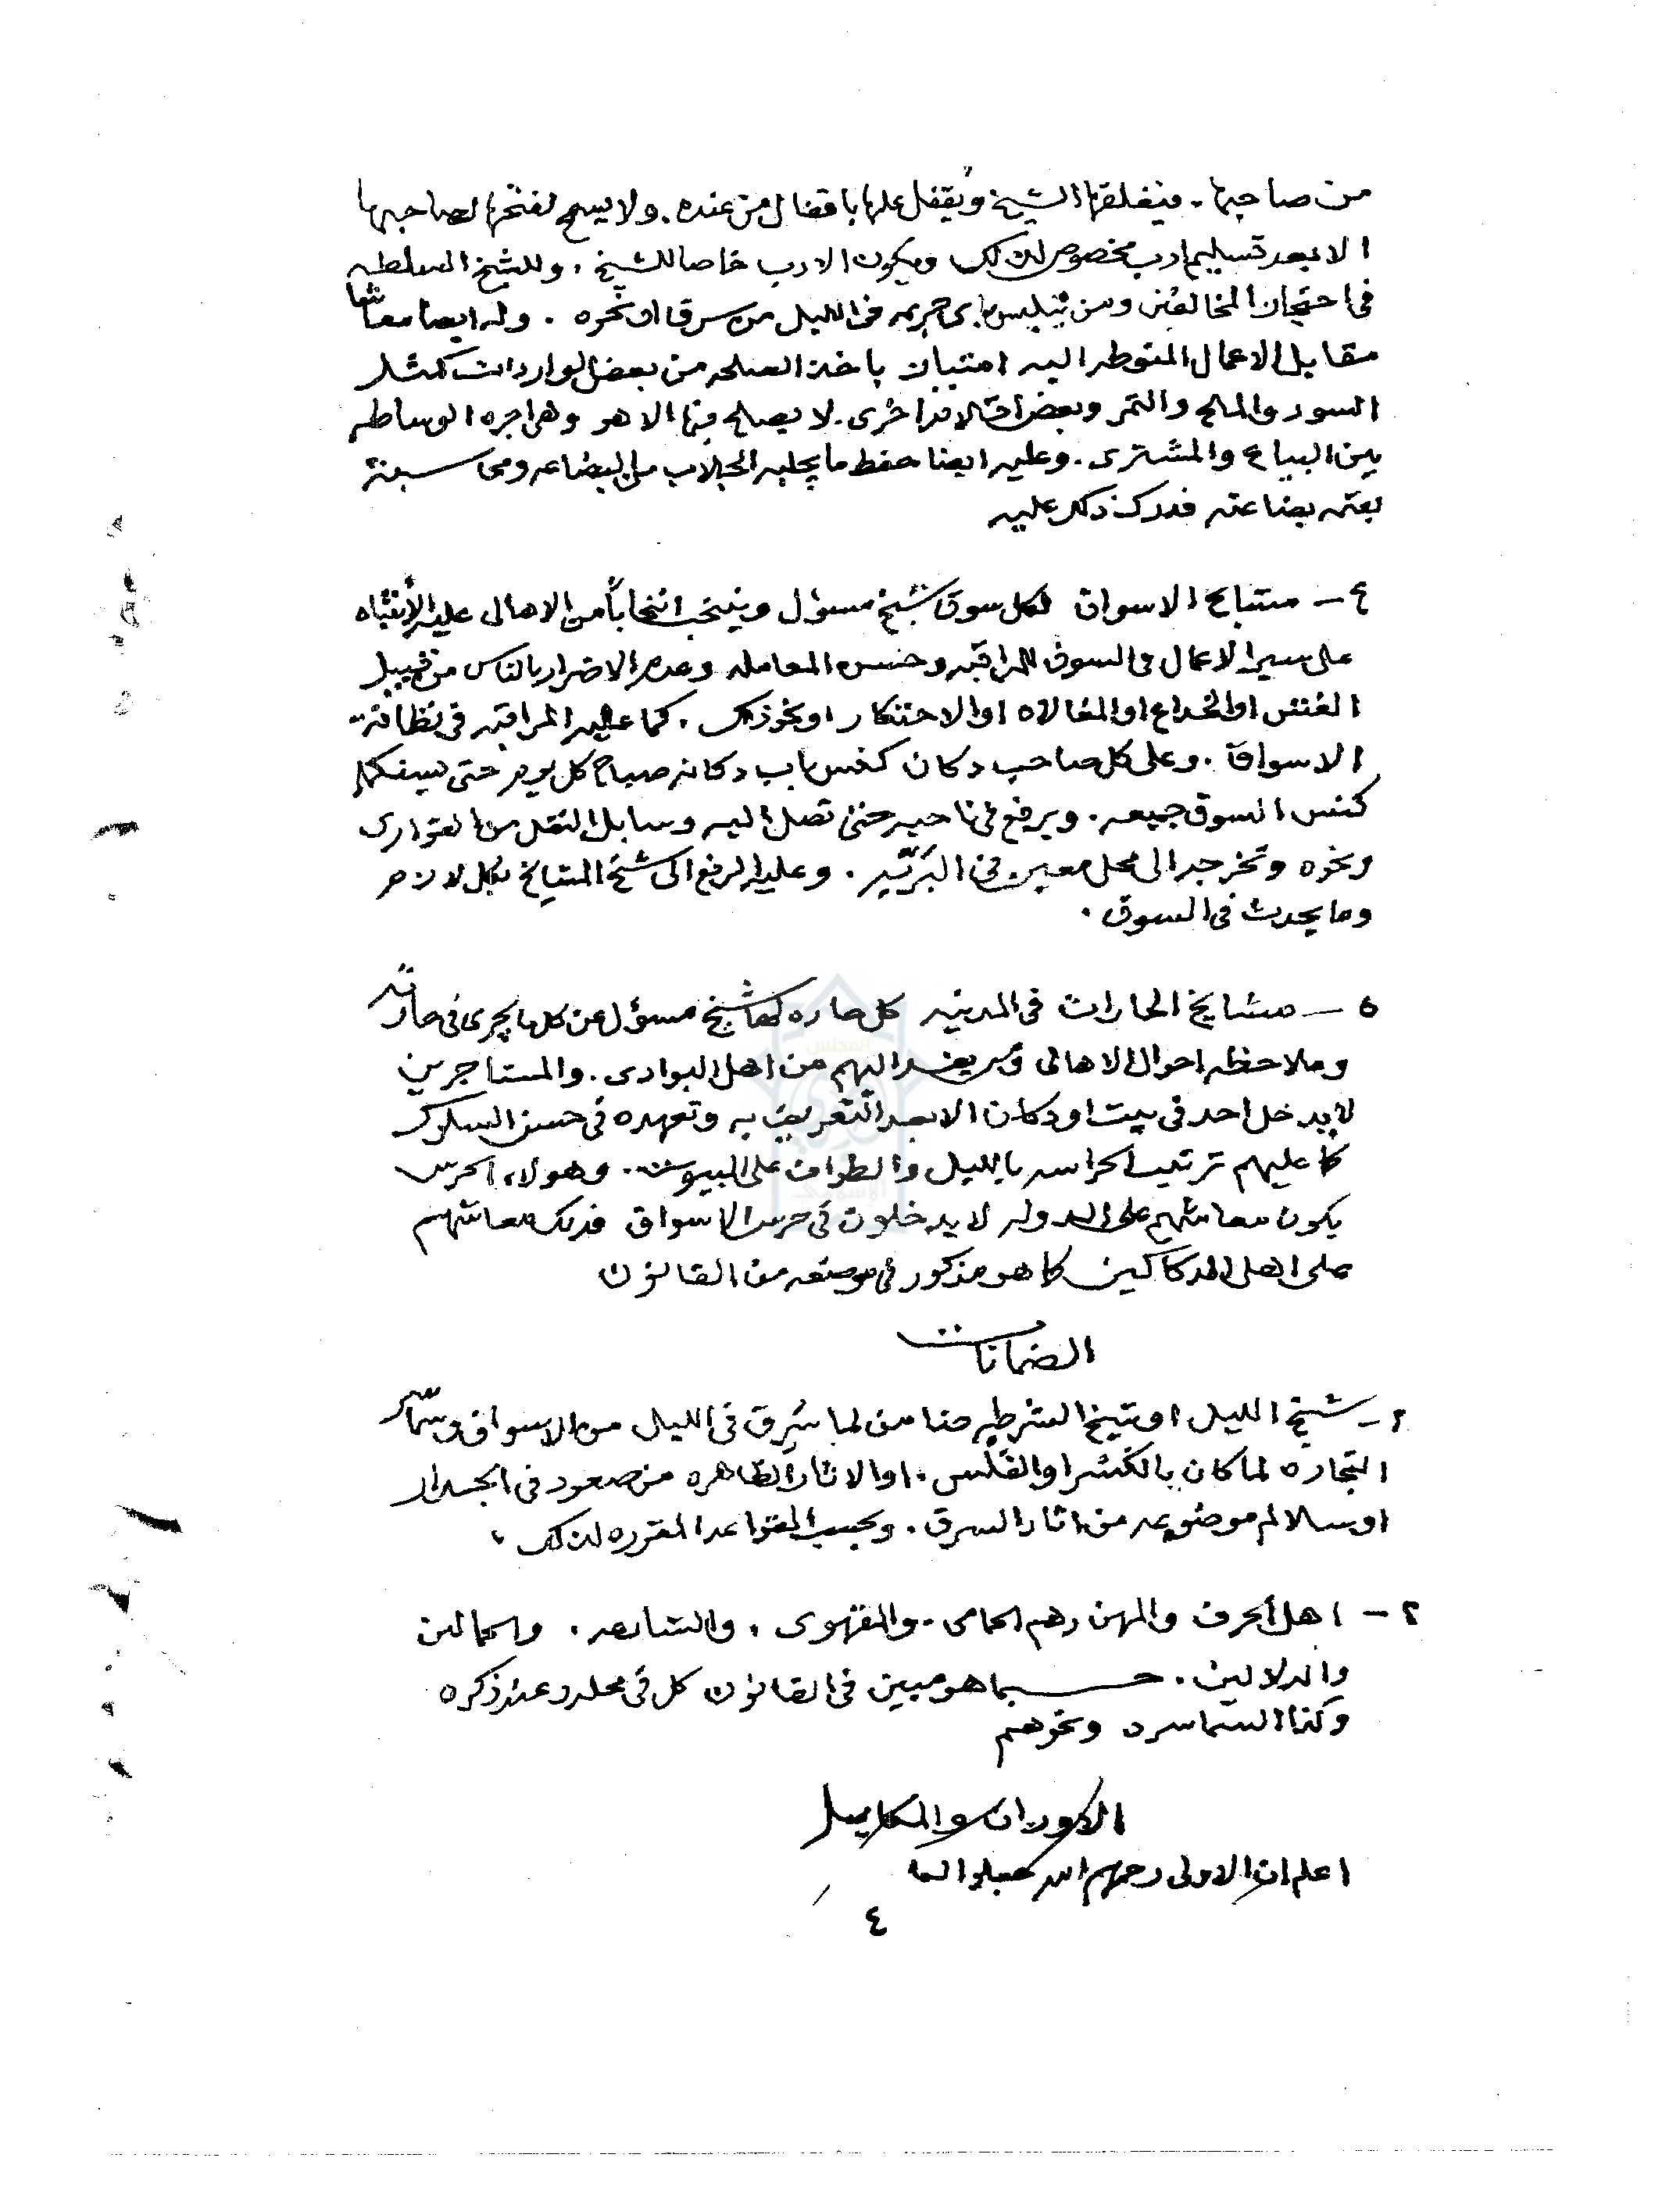 من صاحبها . فيغلقها الشيخ ويقفل عليها باقفال من عنده . ولا يسمح لفتحها لصاحبها
الا بعد تسليم ادب مخصوص لذلك ويكون الادب خاصا للشيخ . وللشيخ السلطه
في احتجاز المخالفين ومن يتلبس باي جريمه في الليل من سرقا او نحوه . وله ايضا معاشا
مقابل الاعمال المنوطه اليه امتياز باخذ الصلحه من بعض الواردات كمثل
السود والملح والتمر وبعض اخرى . لا يصلح فيها الا هو وهي اجره الوساطه
بين البياع والمشتري . وعليه ايضا حفظ ما يجلبه الجلاب من البضاعه ومحاسبة
بضاعته فدرك ذلك عليه
٤ – مشايخ الاسواق لكل سوق شيخ مسؤل وينتخب انتخاباً من الاهالي عليه الانتباه
على سير الاعمال في السوق المراقبه وحسن المعامله وعدم الاضرار بالناس من قبيل
الغش او الخداع او المغالاه او الاحتكار او نحو ذلك . كما عليه المراقبه في نظافة
الاسواق . وعلى كل صاحب دكان كنس باب دكانه صباح كل يوم حتى
كنس السوق جميعه . ويرفع في ناحيه حتى تصل اليه وسايل النقل من العواري
ونحوه وتخرجه الى محل معين في البريّه . وعليه الرفع الى شيخ المشايخ بكل لازم
وما يحدث في السوق .
٥ – مشايخ الحارات في المدينه كل حاره لها شيخ مسؤل عن كل ما يجري في حارته
وملاحظه احوال الاهالي ومن يفد اليهم من اهل البوادي . والمستاجرين
لا يدخل احد في بيت او دكان الا بعد التعريف به وتعهده في حسن السلوك
كما عليهم ترتيب الحراسه بالليل والطواف على البيوت . وهولاء الحرس
يكون معاشهم على الدوله لا يدخلون في حرس الاسواق فدرك معاشهم
على اهل الدكاكين كما هو مذكور في موضعه من القانون
الضمانات
١ – شيخ الليل او شيخ الشرطه ضامن لما سُرِق في الليل من الاسواق وسماسر
التجاره لما كان بالكسر او الفلس . او الاثار الظاهره من صعود في الجدار
او سلالم موضوعه من اثار السرق . وبحسب القواعد المقرره لذلك .
٢ – اهل الحرف والمهن وهم الحمامي . والمقهوي . والحمالين
والدلالين . حسبما هو مبين في القانون كل في محله وعند ذكره
وكذا السماسره ونحوهم
الاوزان والمكاييل
اعلم ان الاولى رحمهم الله
٤